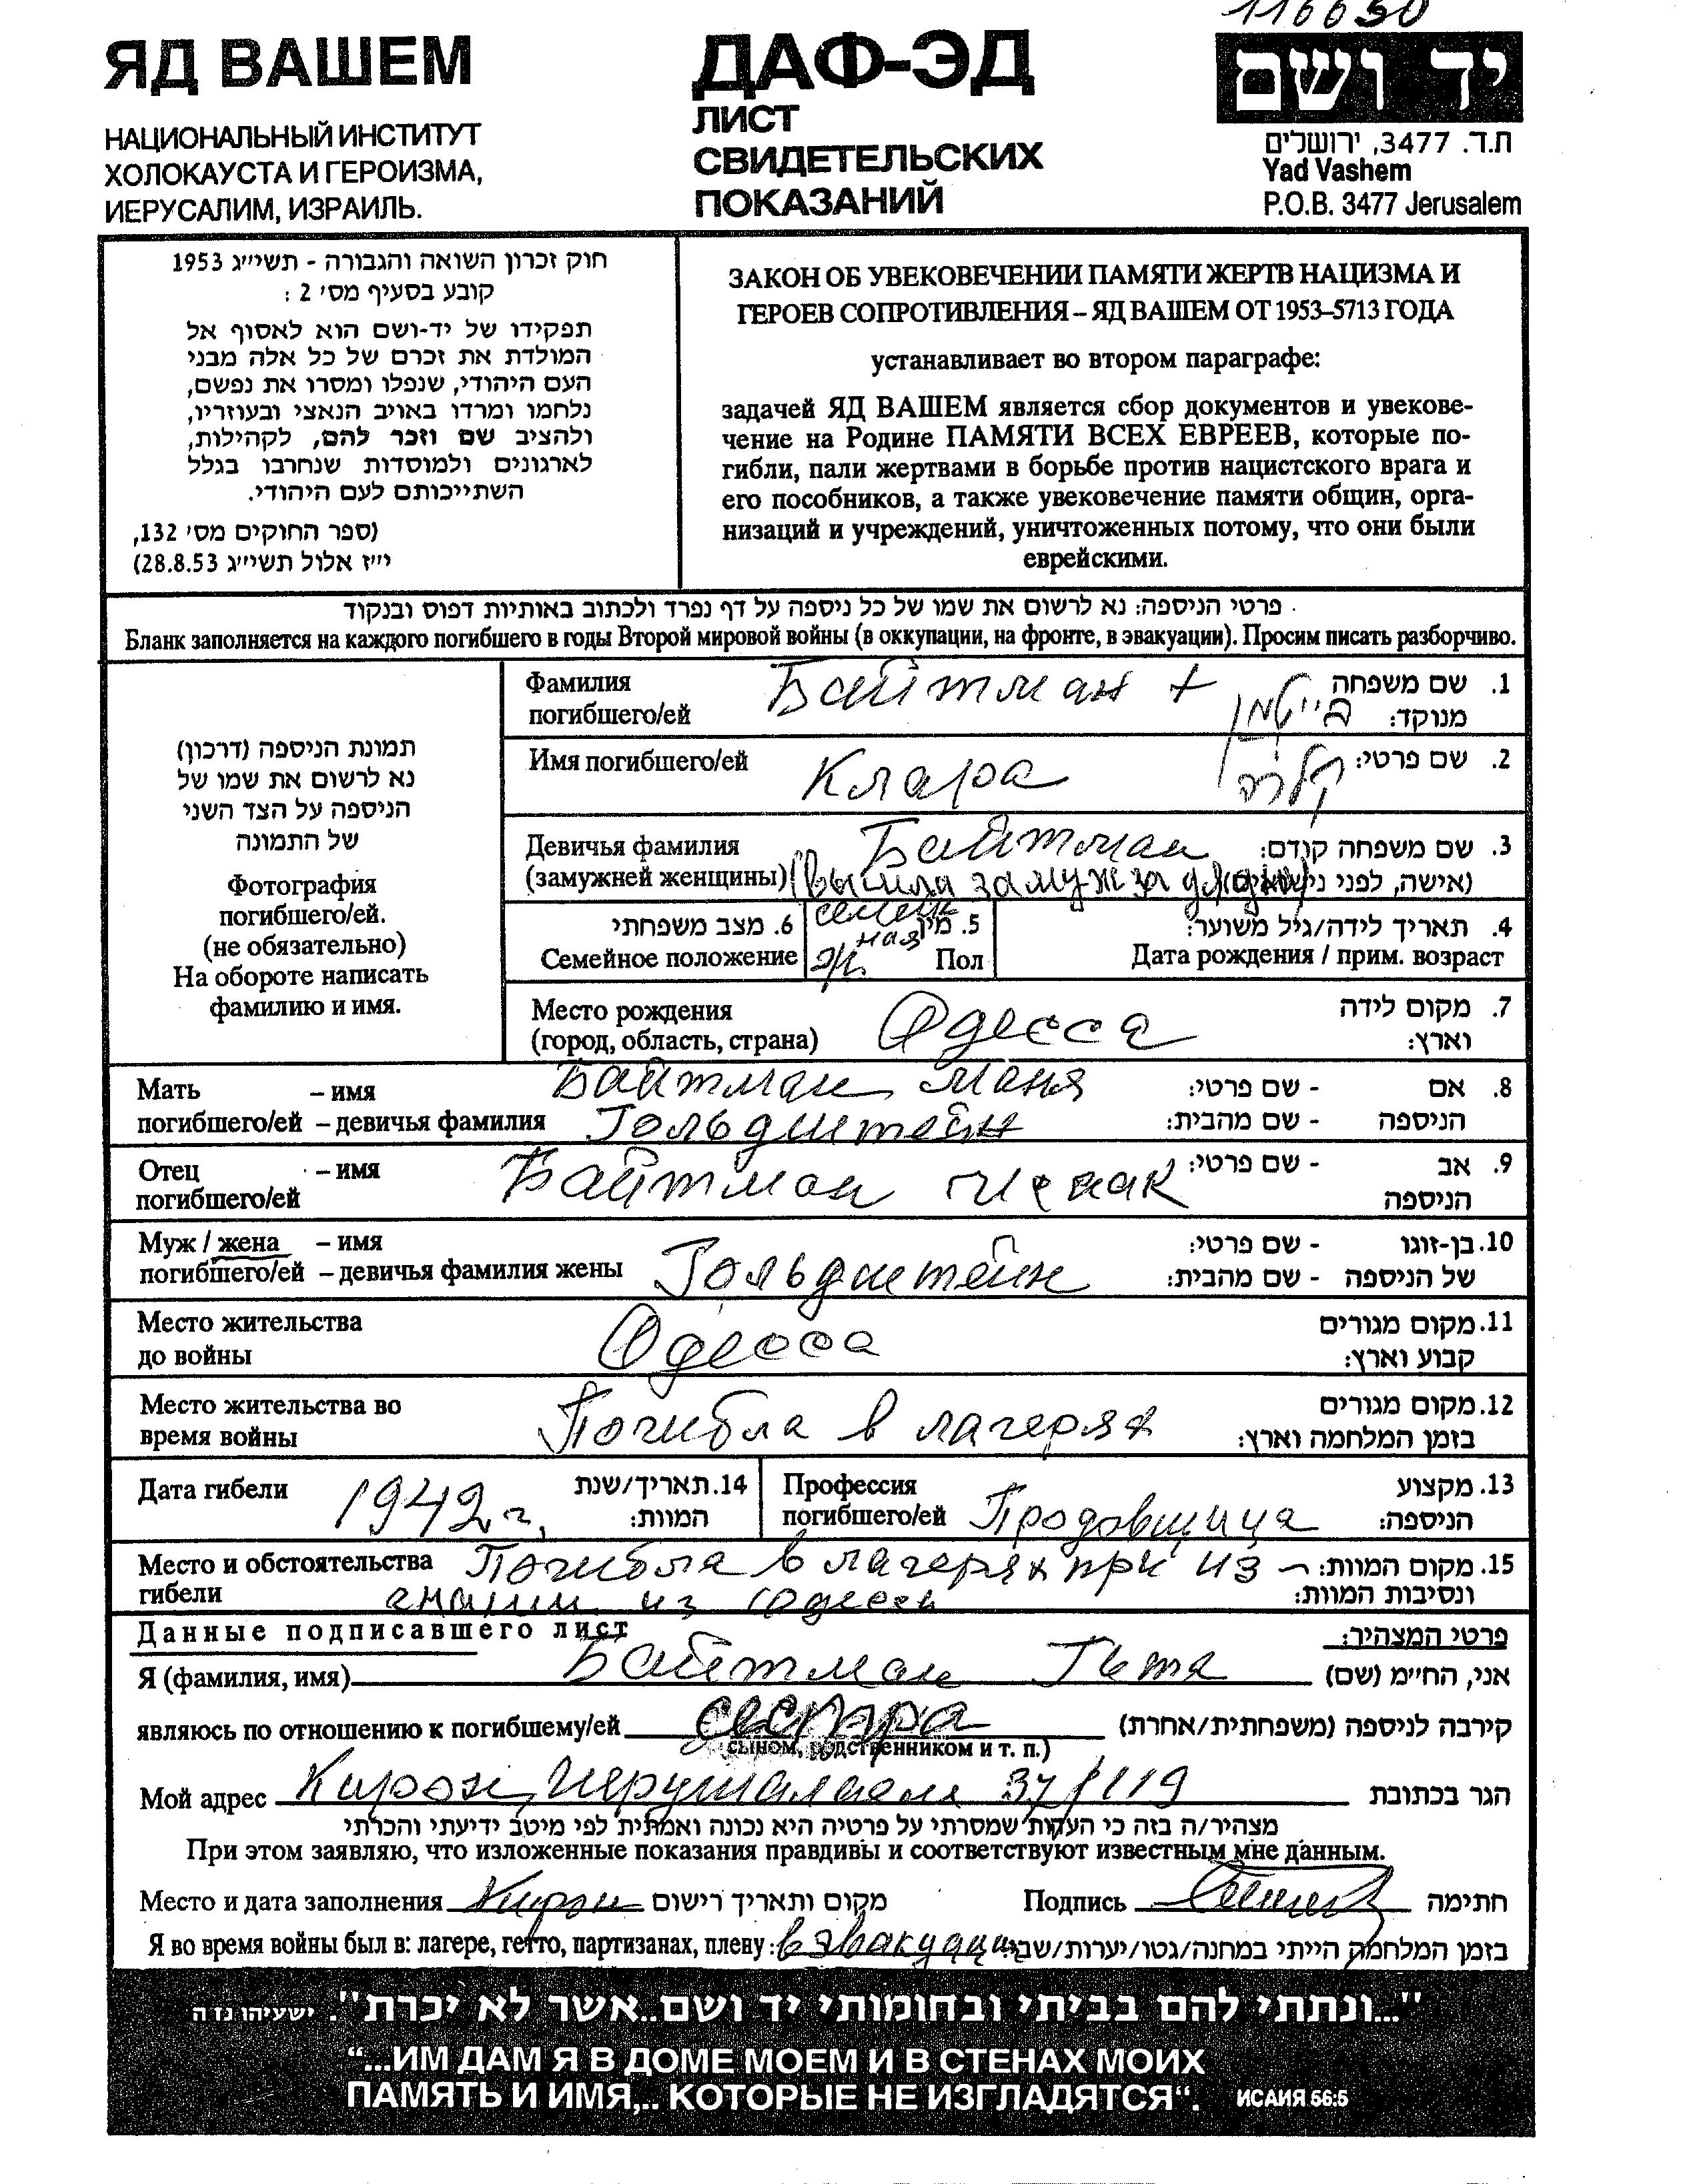 116630
ЯД ВАШЕМ
НАЦИОНАЛЬНЫЙ ИНСТИТУТ
ХОЛОКАУСТА И ГЕРОИЗМА,
ИЕРУСАЛИМ, ИЗРАИЛЬ.
ДАФ-ЭД
ЛИСТ
СВИДЕТЕЛЬСКИХ
ПОКАЗАНИЙ
יד ושם
ת.ד. 3477, ירושלים
Yad Vashem
P.O.B. 3477 Jerusalem
חוק זכרון השואה והגבורה - תשי״ג 1953
קובע בסעיף מס׳ 2 :
תפקידו של יד-ושם הוא לאסוף אל
המולדת את זכרם של כל אלה מבני
העם היהודי, שנפלו ומסרו את נפשם,
נלחמו ומרדו באויב הנאצי ובעוזריו,
ולהציב שם וזכר להם, לקהילות,
לארגונים ולמוסדות שנחרבו בגלל
השתייכותם לעם היהודי.
(ספר החוקים מס׳ 132,
י״ז אלול תשי״ג 28.8.53)
ЗАКОН ОБ УВЕКОВЕЧЕНИИ ПАМЯТИ ЖЕРТВ НАЦИЗМА И
ГЕРОЕВ СОПРОТИВЛЕНИЯ – ЯД ВАШЕМ ОТ 1953–5713 ГОДА
устанавливает во втором параграфе:
задачей ЯД ВАШЕМ является сбор документов и увекове-
чение на Родине ПАМЯТИ ВСЕХ ЕВРЕЕВ, которые по-
гибли, пали жертвами в борьбе против нацистского врага и
его пособников, а также увековечение памяти общин, орга-
низаций и учреждений, уничтоженных потому, что они были
еврейскими.
פרטי הניספה: נא לרשום את שמו של כל ניספה על דף נפרד ולכתוב באותיות דפוס ובנקוד
Бланк заполняется на каждого погибшего в годы Второй мировой войны (в оккупации, на фронте, в эвакуации). Просим писать разборчиво.
תמונת הניספה (דרכון)
נא לרשום את שמו של
הניספה על הצד השני
של התמונה
Фотография
погибшего/ей.
(не обязательно)
На обороте написать
фамилию и имя.
Фамилия Байтман + 1. שם משפחה
погибшего/ей בייטמן מנוקד:
Имя погибшего/ей Клара קלרה 2. שם פרטי:
Девичья фамилия Байтман 3. שם משפחה קודם:
(замужней женщины) (вышла замуж за дядю) (אישה, לפני נישואים)
6. מצב משפחתי семей 5. מין 4. תאריך לידה/גיל משוער:
Семейное положение ная Пол Дата рождения / прим. возраст
Место рождения Одесса 7. מקום לידה
(город, область, страна) וארץ:
Мать – имя Байтман Маня - שם פרטי: 8. אם
погибшего/ей – девичья фамилия Гольдштейн - שם מהבית: הניספה
Отец – имя Байтман Исаак - שם פרטי: 9. אב
погибшего/ей הניספה
Муж / жена – имя - שם פרטי: 10. בן-זוגו
погибшего/ей – девичья фамилия жены Гольдштейн - שם מהבית: של הניספה
Место жительства Одесса 11. מקום מגורים
до войны קבוע וארץ:
Место жительства во Погибла в лагерях 12. מקום מגורים
время войны בזמן המלחמה וארץ:
Дата гибели 1942 г. 14. תאריך/שנת המוות:
Профессия
погибшего/ей Продовщица 13. מקצוע הניספה:
Место и обстоятельства Погибла в лагерях при из- 15. מקום המוות:
гибели гнании из Одессы ונסיבות המוות:
Данные подписавшего лист פרטי המצהיר:
Я (фамилия, имя) Байтман Гитя אני, החי״מ (שם)
являюсь по отношению к погибшему/ей сестра קירבה לניספה (משפחתית/אחרת)
сыном, родственником и т. п.)
Мой адрес Кирон, Иерушалаем 37/119 הגר בכתובת
מצהיר/ה בזה כי העדות שמסרתי על פרטיה היא נכונה ואמתית לפי מיטב ידיעתי והכרתי
При этом заявляю, что изложенные показания правдивы и соответствуют известным мне данным.
Место и дата заполнения Кирон מקום ותאריך רישום Подпись חתימה
Я во время войны был в: лагере, гетто, партизанах, плену: в эвакуации בזמן המלחמה הייתי במחנה/גטו/יערות/שבי:
"...ונתתי להם בביתי ובחומותי יד ושם..אשר לא יכרת". ישעיהו נז ה
“...ИМ ДАМ Я В ДОМЕ МОЕМ И В СТЕНАХ МОИХ
ПАМЯТЬ И ИМЯ,.. КОТОРЫЕ НЕ ИЗГЛАДЯТСЯ“. ИСАИЯ 56:5